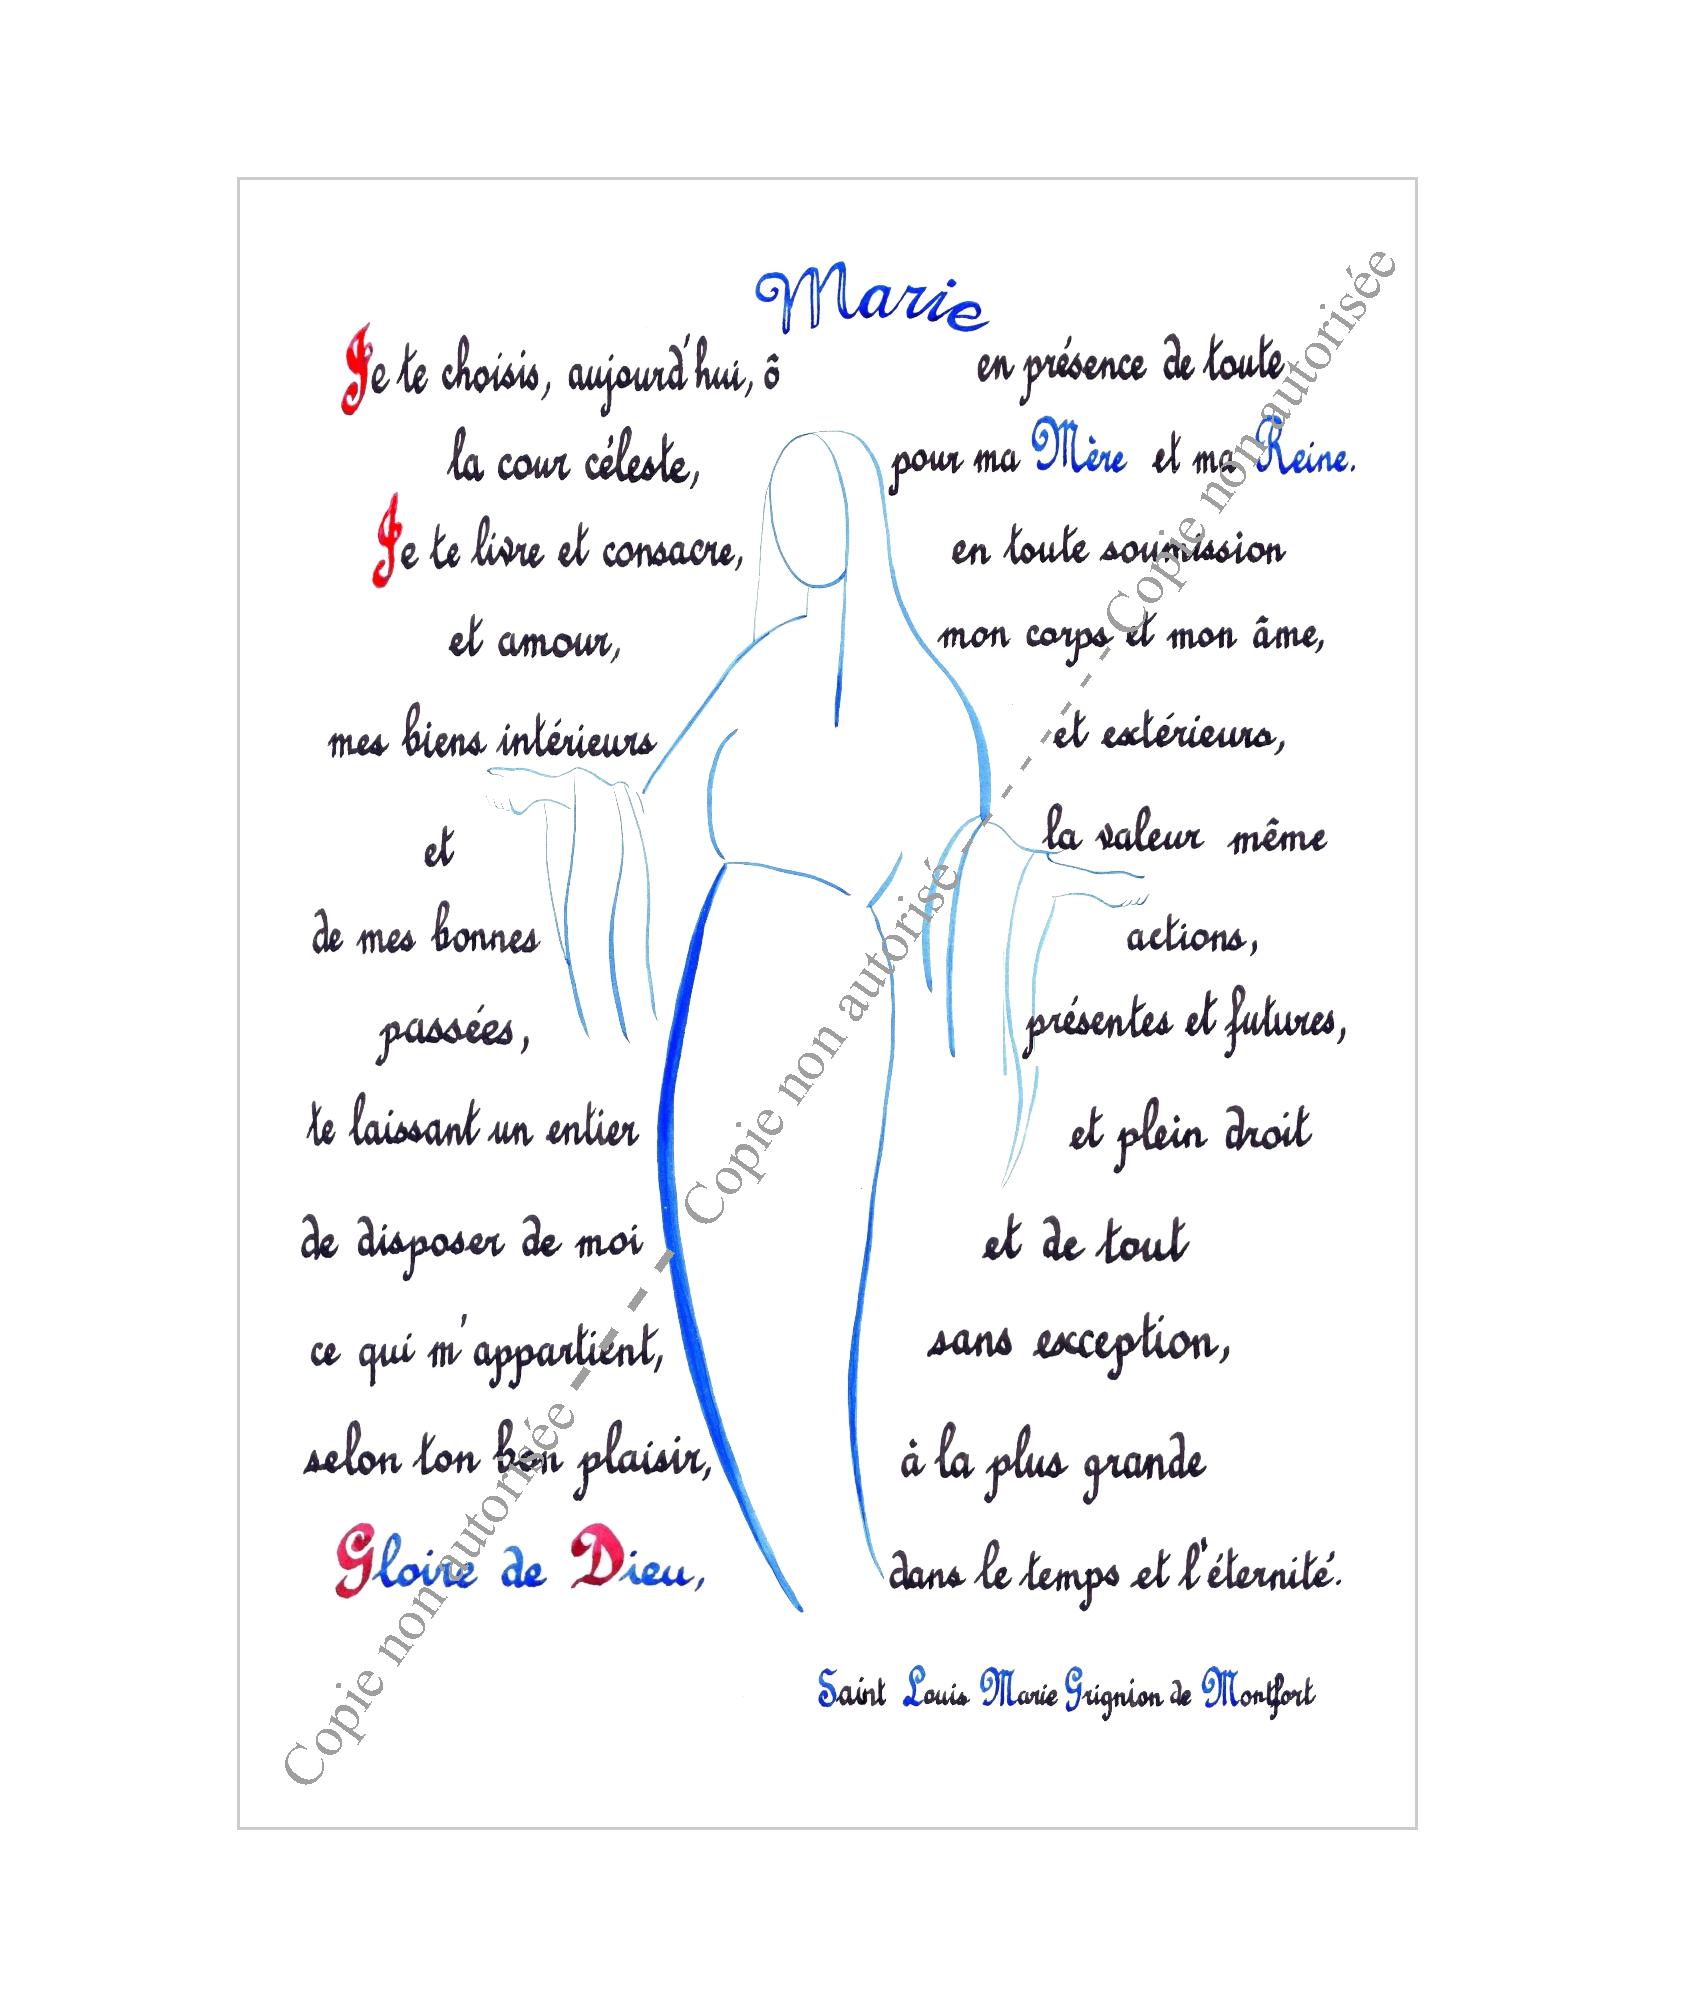 Marie
Je te choisis, aujourd'hui, ô en présence de toute
la cour céleste, pour ma Mère et ma Reine.
Je te livre et consacre, en toute soumission
et amour, mon corps et mon âme,
mes biens intérieurs et extérieurs,
et la valeur même
de mes bonnes actions,
passées, présentes et futures,
te laissant un entier et plein droit
de disposer de moi et de tout
ce qui m'appartient, sans exception,
selon ton bon plaisir, à la plus grande
Gloire de Dieu, dans le temps et l'éternité.
Saint Louis Marie Grignion de Montfort
Copie non autorisée - - - Copie non autorisé - - - Copie non autorisée